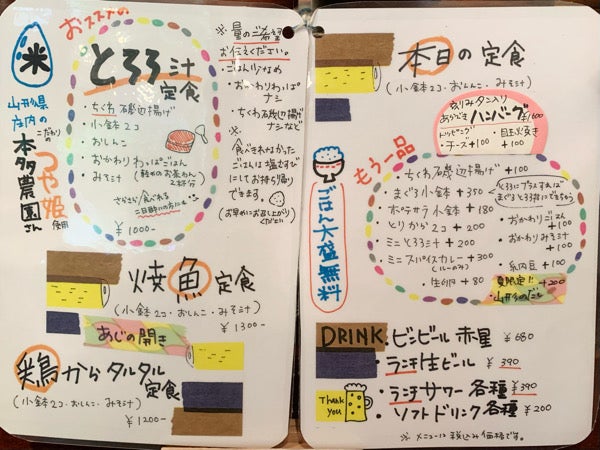 おススメの
米
山形県
庄内の
こだわりの
本多農園さん
つや姫
使用
とろろ汁
定食
・ちくわ磯辺揚げ
・小鉢2コ
・おしんこ
・おかわりわっぱごはん
(軽めのお茶わん
2杯分)
・みそ汁
さらさら食べれる
二日酔いの方にも
¥1000-
※量のご希望
お伝えください。
・ごはん少なめ
・おかわりわっぱ
ナシ
・ちくわ磯辺揚げ
ナシなど
※
食べきれなかった
ごはんは塩むすび
にしてお持ち帰り
できます。
(お早めにお召し上がり
ください)
焼魚定食
(小鉢2コ・おしんこ・みそ汁)
¥1300-
あじの開き
鶏からタルタル
定食
(小鉢2コ・おしんこ・みそ汁)
¥1200-
本日の定食
(小鉢2コ・おしんこ・みそ汁)
刻みタンスリ
あらびきハンバーグ
¥1600
トッピング
・チーズ+100
・目玉焼き
+100
ごはん大盛無料
もう一品
・ちくわ磯辺揚げ +100
・まぐろ小鉢 +350
・ポテサラ小鉢 +180
・とりから2コ +200
・ミニとろろ汁 +200
・ミニスパイスカレー +300
(ルーのみ)
・生卵 +80
とろろにプラスすれば
まぐろとろろ丼にできちゃう
・おかわりごはん
+100
・おかわりみそ汁
+100
・納豆 +100
夏限定! +200
・山形のだし
DRINK
・ビンビール赤星 ¥680
・ランチ生ビール ¥390
・ランチサワー各種 ¥390
・ソフトドリンク各種 ¥200
Thank
you
※メニューは税込み価格です。